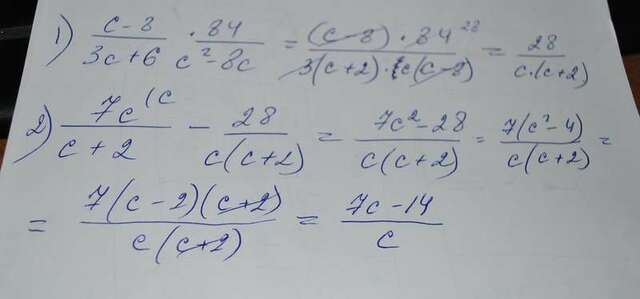 1) (c-8)/(3c+6) · 84/(c²-8c) = ((c-8) · 84 28)/(3(c+2) · c(c-8)) = 28/(c·(c+2))
2) 7c (c/(c+2) - 28/(c(c+2)) = (7c²-28)/(c(c+2)) = 7(c²-4)/(c(c+2)) =
= 7(c-2)(c+2)/(c(c+2)) = (7c-14)/c